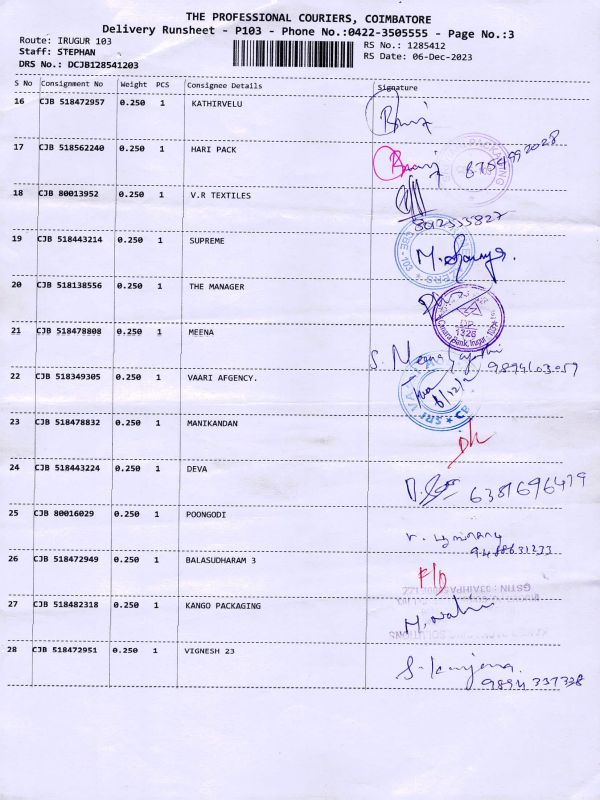 THE PROFESSIONAL COURIERS, COIMBATORE
Delivery Runsheet - P103 - Phone No.:0422-3505555 - Page No.:3
Route: IRUGUR 103
RS No.: 1285412
Staff: STEPHAN
RS Date: 06-Dec-2023
DRS No.: DCJB128541203
S No Consignment No Weight PCS Consignee Details Signature
16 CJB 518472957 0.250 1 KATHIRVELU
17 CJB 518562240 0.250 1 HARI PACK 8754992028
18 CJB 80013952 0.250 1 V.R TEXTILES
19 CJB 518443214 0.250 1 SUPREME
20 CJB 518138556 0.250 1 THE MANAGER
21 CJB 518478808 0.250 1 MEENA
22 CJB 518349305 0.250 1 VAARI AFGENCY. 6/12/
23 CJB 518478832 0.250 1 MANIKANDAN
24 CJB 518443224 0.250 1 DEVA 6381696419
25 CJB 80016029 0.250 1 POONGODI
26 CJB 518472949 0.250 1 BALASUDHARAM 3
27 CJB 518482318 0.250 1 KANGO PACKAGING
28 CJB 518472951 0.250 1 VIGNESH 23
9894337338